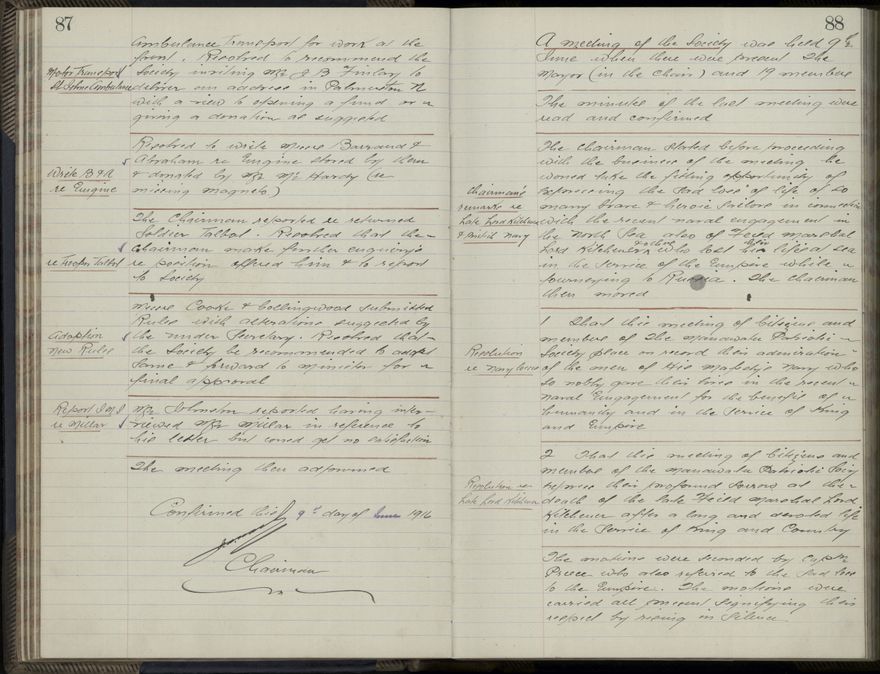 87
Ambulance Transport for work at the
front. Resolved to recommend the
Motor Transport
Society inviting Mr J B Finlay to
St Johns Ambulance
deliver an address in Palmerston N
with a view to opening a fund or
giving a donation as suggested
Resolved to write Messrs Burrand &
Abraham re Engine stored by them
Write B & A
re Engine
& donated by Mr Hardy (re
missing magneto)
The Chairman reported re returned
Soldier Talbot. Resolved that the
Chairman make further enquirys
re Trooper Talbot
re position offered him & to report
to Society
Messrs Cooke & Collingwood submitted
Rules with alterations suggested by
Adoption
New Rules
the under Secretary. Resolved that
the Society be recommended to adopt
same & forward to Minister for
final approval
Report
re Millar
Mr Johnston reported having inter-
viewed Mr Millar in reference to
his letter but could get no satisfaction
The meeting then adjourned
Confirmed this 9th day of June 1916
Chairman
88
A meeting of the Society was held 9th
June when there were present The
Mayor (in the Chair) and 19 members
The minutes of the last meeting were
read and confirmed
The Chairman stated before proceeding
with the business of the meeting he
would take the fitting opportunity of
Chairman's
remarks re
Late Lord Kitchener
& British Navy
expressing the sad loss of life of so
many brave & heroic sailors in connection
with the recent naval engagement in
the North Sea also of Feild Marshal
Lord Kitchener who lost his life at sea
in the service of the Empire while
journeying to Russia. The Chairman
then moved
1 That this meeting of Citizens and
members of the Manawatu Patriotic
Resolution
re Navy losses
Society place on record their admiration
of the men of His Majesty's Navy who
so nobly gave their lives in the recent
Naval Engagement for the benefit of
humanity and in the service of King
and Empire
2 That this meeting of Citizens and
members of the Manawatu Patriotic Socy
Resolution re
Late Lord Kitchener
express their profound sorrow at the
death of the late Feild Marshal Lord
Kitchener after a long and devoted life
in the service of King and Country
The motions were seconded by
Preece who also referred to the sad loss
to the Empire. The motions were
carried all present signifying their
respect by rising in silence